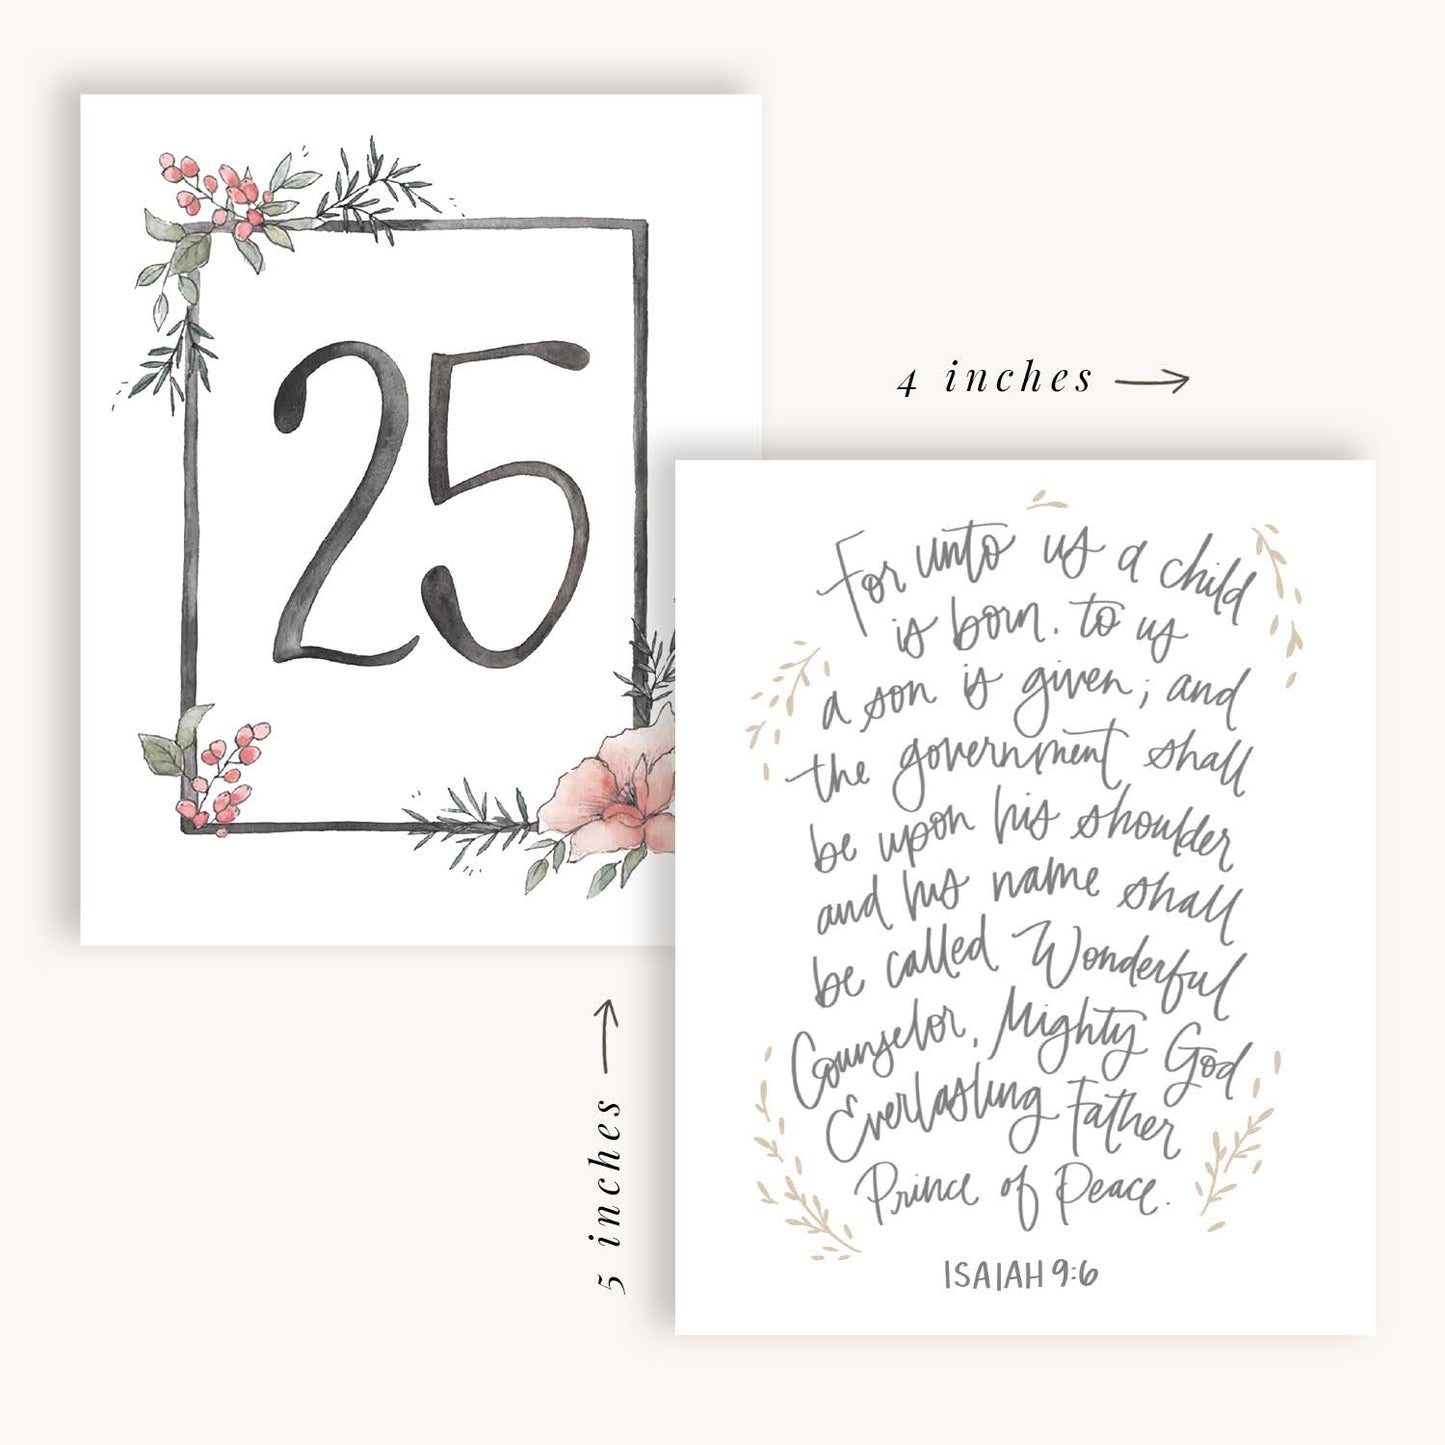 25
4 inches
For unto us a child
is born. to us
a son is given; and
the government shall
be upon his shoulder
and his name shall
be called Wonderful
Counselor, Mighty God
Everlasting Father
Prince of Peace.
ISAIAH 9:6
5 inches